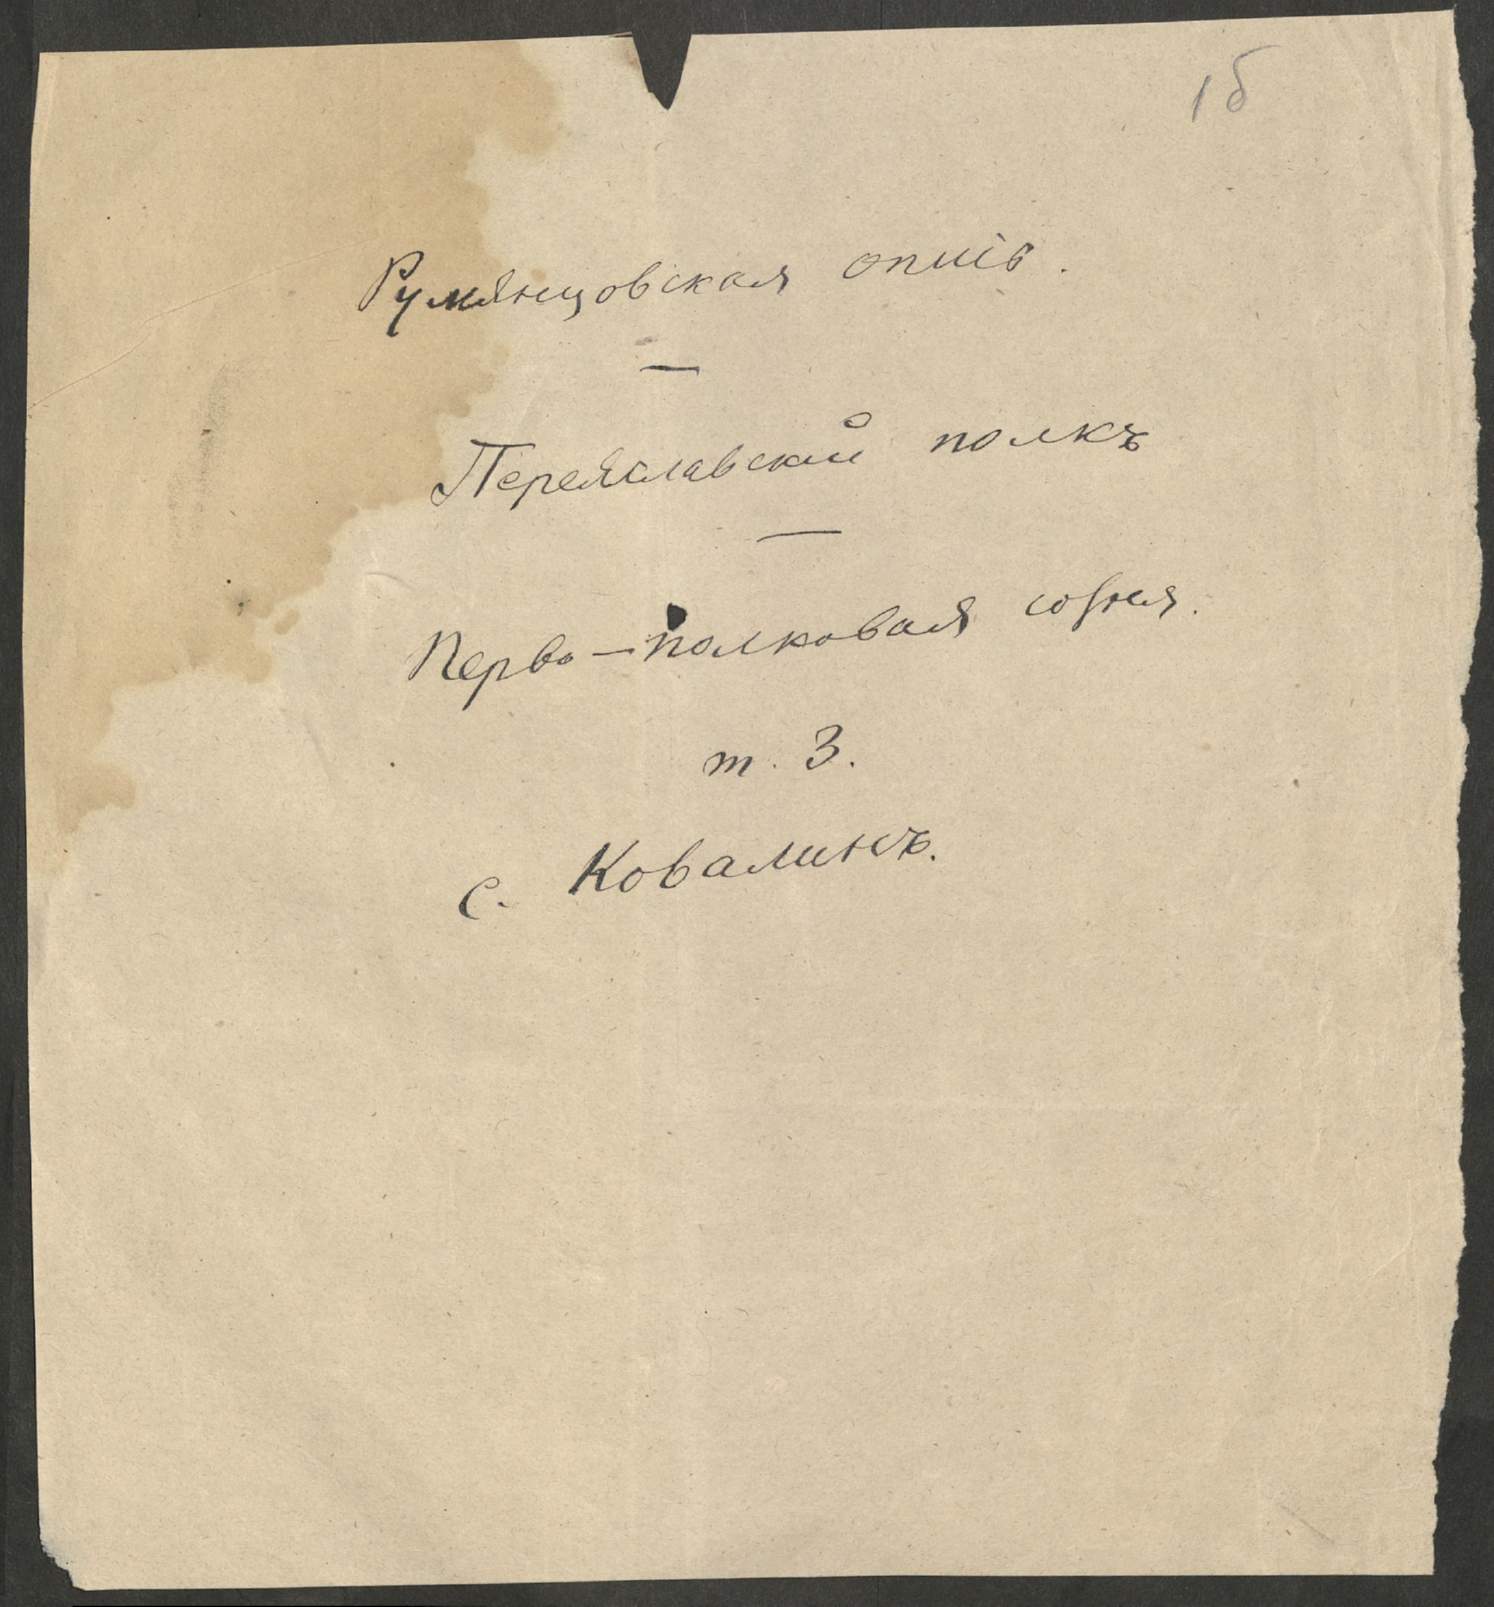 1б
Румянцовская опись.
—
Переяславский полкъ
—
Перво-полковая сотня.
т. 3.
с. Ковалинъ.